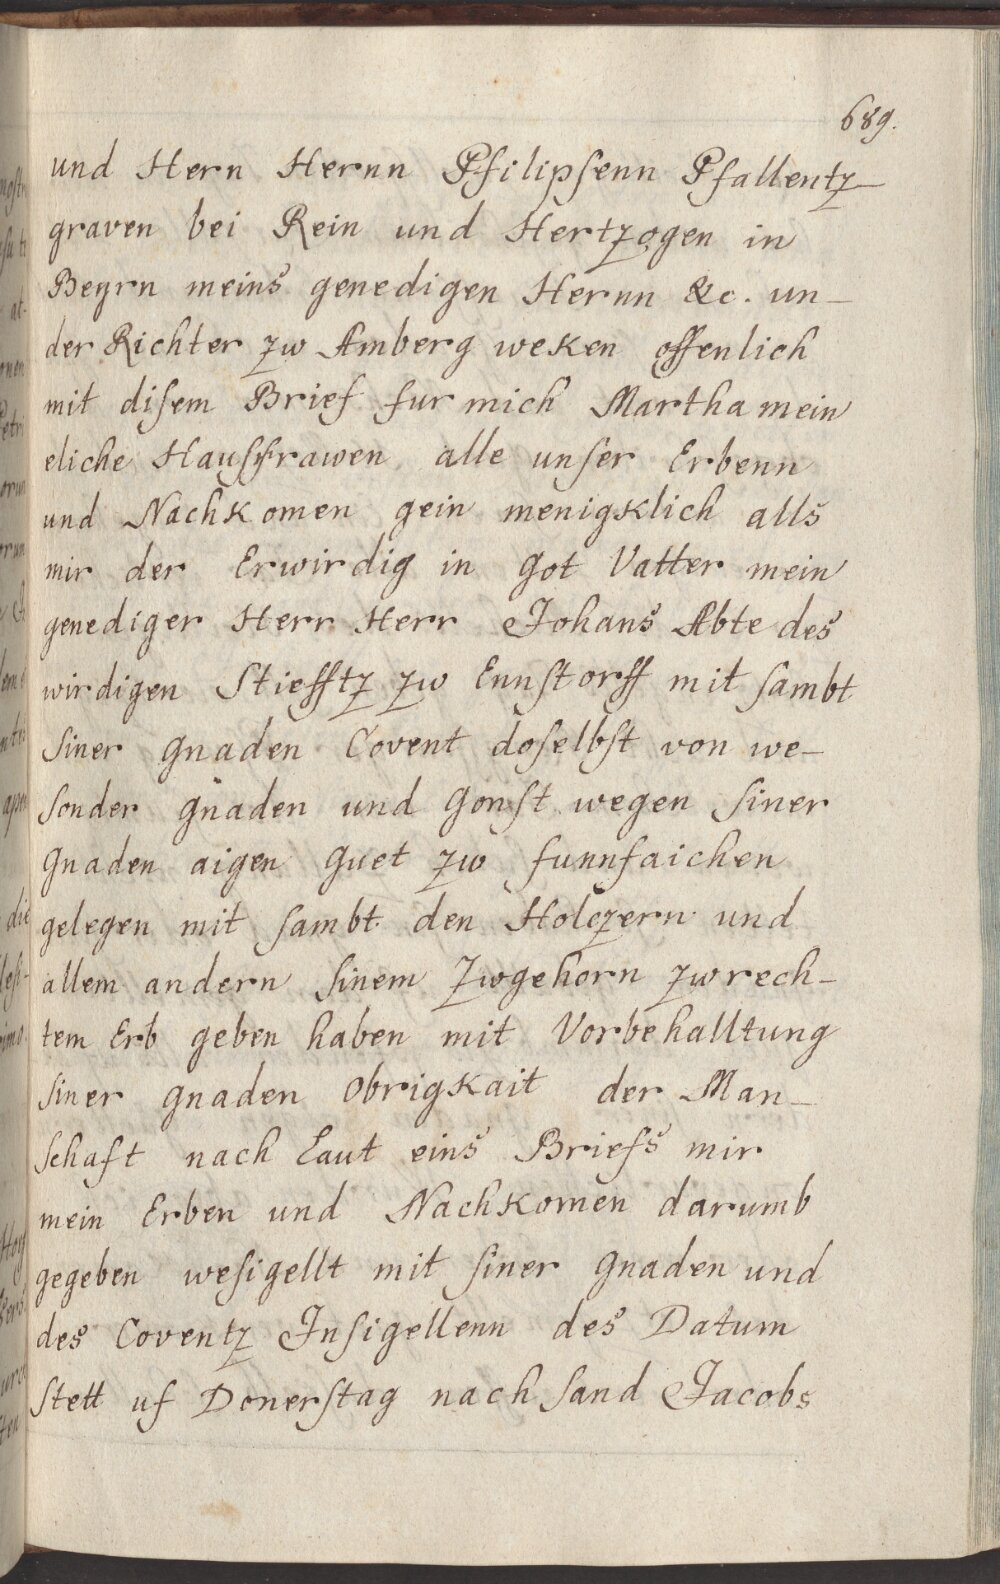 689.
und Hern Hernn Pfilipsenn Pfallentz-
graven bei Rein und Hertzogen in
Beyrn meins genedigen Hernn &c. un-
der Richter zw Amberg weken offenlich
mit disem Brief fur mich Martha mein
eliche Hausfrawen alle unser Erbenn
und Nachkomen gein menigklich alls
mir der Erwirdig in got Vatter mein
genediger Herr Herr Johans Abte des
wirdigen Stiefftz zw Ennstorff mit sambt
siner gnaden Covent doselbst von we-
sonder gnaden und gonst wegen siner
gnaden aigen guet zw funnfaichen
gelegen mit sambt den Holczern und
allem andern sinem Zwgehorn zw rech-
tem Erb geben haben mit Vorbehalltung
siner gnaden obrigkait der Man-
schaft nach Laut eins Briefs mir
mein Erben und Nachkomen darumb
gegeben wesigellt mit siner gnaden und
des Coventz Insigellenn des Datum
stett uf Donerstag nach sand Jacobs